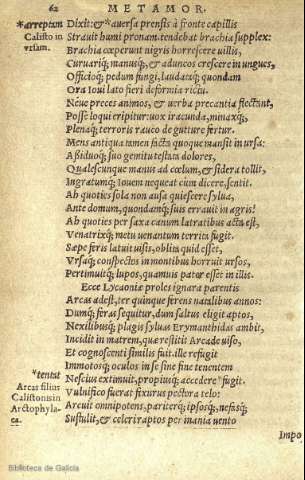 62 METAMOR.
*arreptam Dixit: & *aduersa prensis à fronte capillis
Calisto in Strauit humi pronam. tendebat brachia supplex:
vrsam. Brachia cœperunt nigris horrescere uillis,
Curuariq́; manusq́;, & aduncos crescere in ungues,
Officioq́; pedum fungi, laudataq́; quondam
Ora Ioui lato fieri deformia rictu.
Néue preces animos, & uerba precantia flectant,
Posse loqui eripitur: uox iracunda, minaxq́;,
Plenaq́; terroris rauco de gutture fertur.
Mens antiqua tamen facta quoque mansit in ursa:
Aßiduoq́; suo gemitu testata dolores,
Qualescunque manus ad cœlum, & sidera tollit,
Ingratumq́; Iouem nequeat cum dicere, sentit.
Ah quoties sola non ausa quiescere sylua,
Ante domum, quondamq́; suis errauit in agris!
Ah quoties per saxa canum latratibus acta est,
Venatrixq́; metu uenantum territa fugit.
Sæpe feris latuit uisis, oblita quid esset,
Vrsaq́; conspectos in montibus horruit ursos,
Pertimuitq́; lupos, quamuis pater esset in illis.
Ecce Lycaoniæ proles ignara parentis
Arcas adest, ter quinque ferens natalibus annos:
Dumq́; feras sequitur, dum saltus eligit aptos,
Nexilibusq́; plagis syluas Erymanthidas ambit,
Incidit in matrem, quæ restitit Arcade uiso,
Et cognoscenti similis fuit. ille refugit
Immotosq́; oculos in se sine fine tenentem
*tentat Nescius extimuit, propiusq́; accedere *fugit.
Arcas filius Vulnifico fuerat fixurus pectora telo:
Calistonis in Arcuit omnipotens, pariterq́; ipsosq́;, nefasq́;
Arctophyla- Sustulit, & celeri raptos per inania vento
ca.
Impo
Biblioteca de Galicia